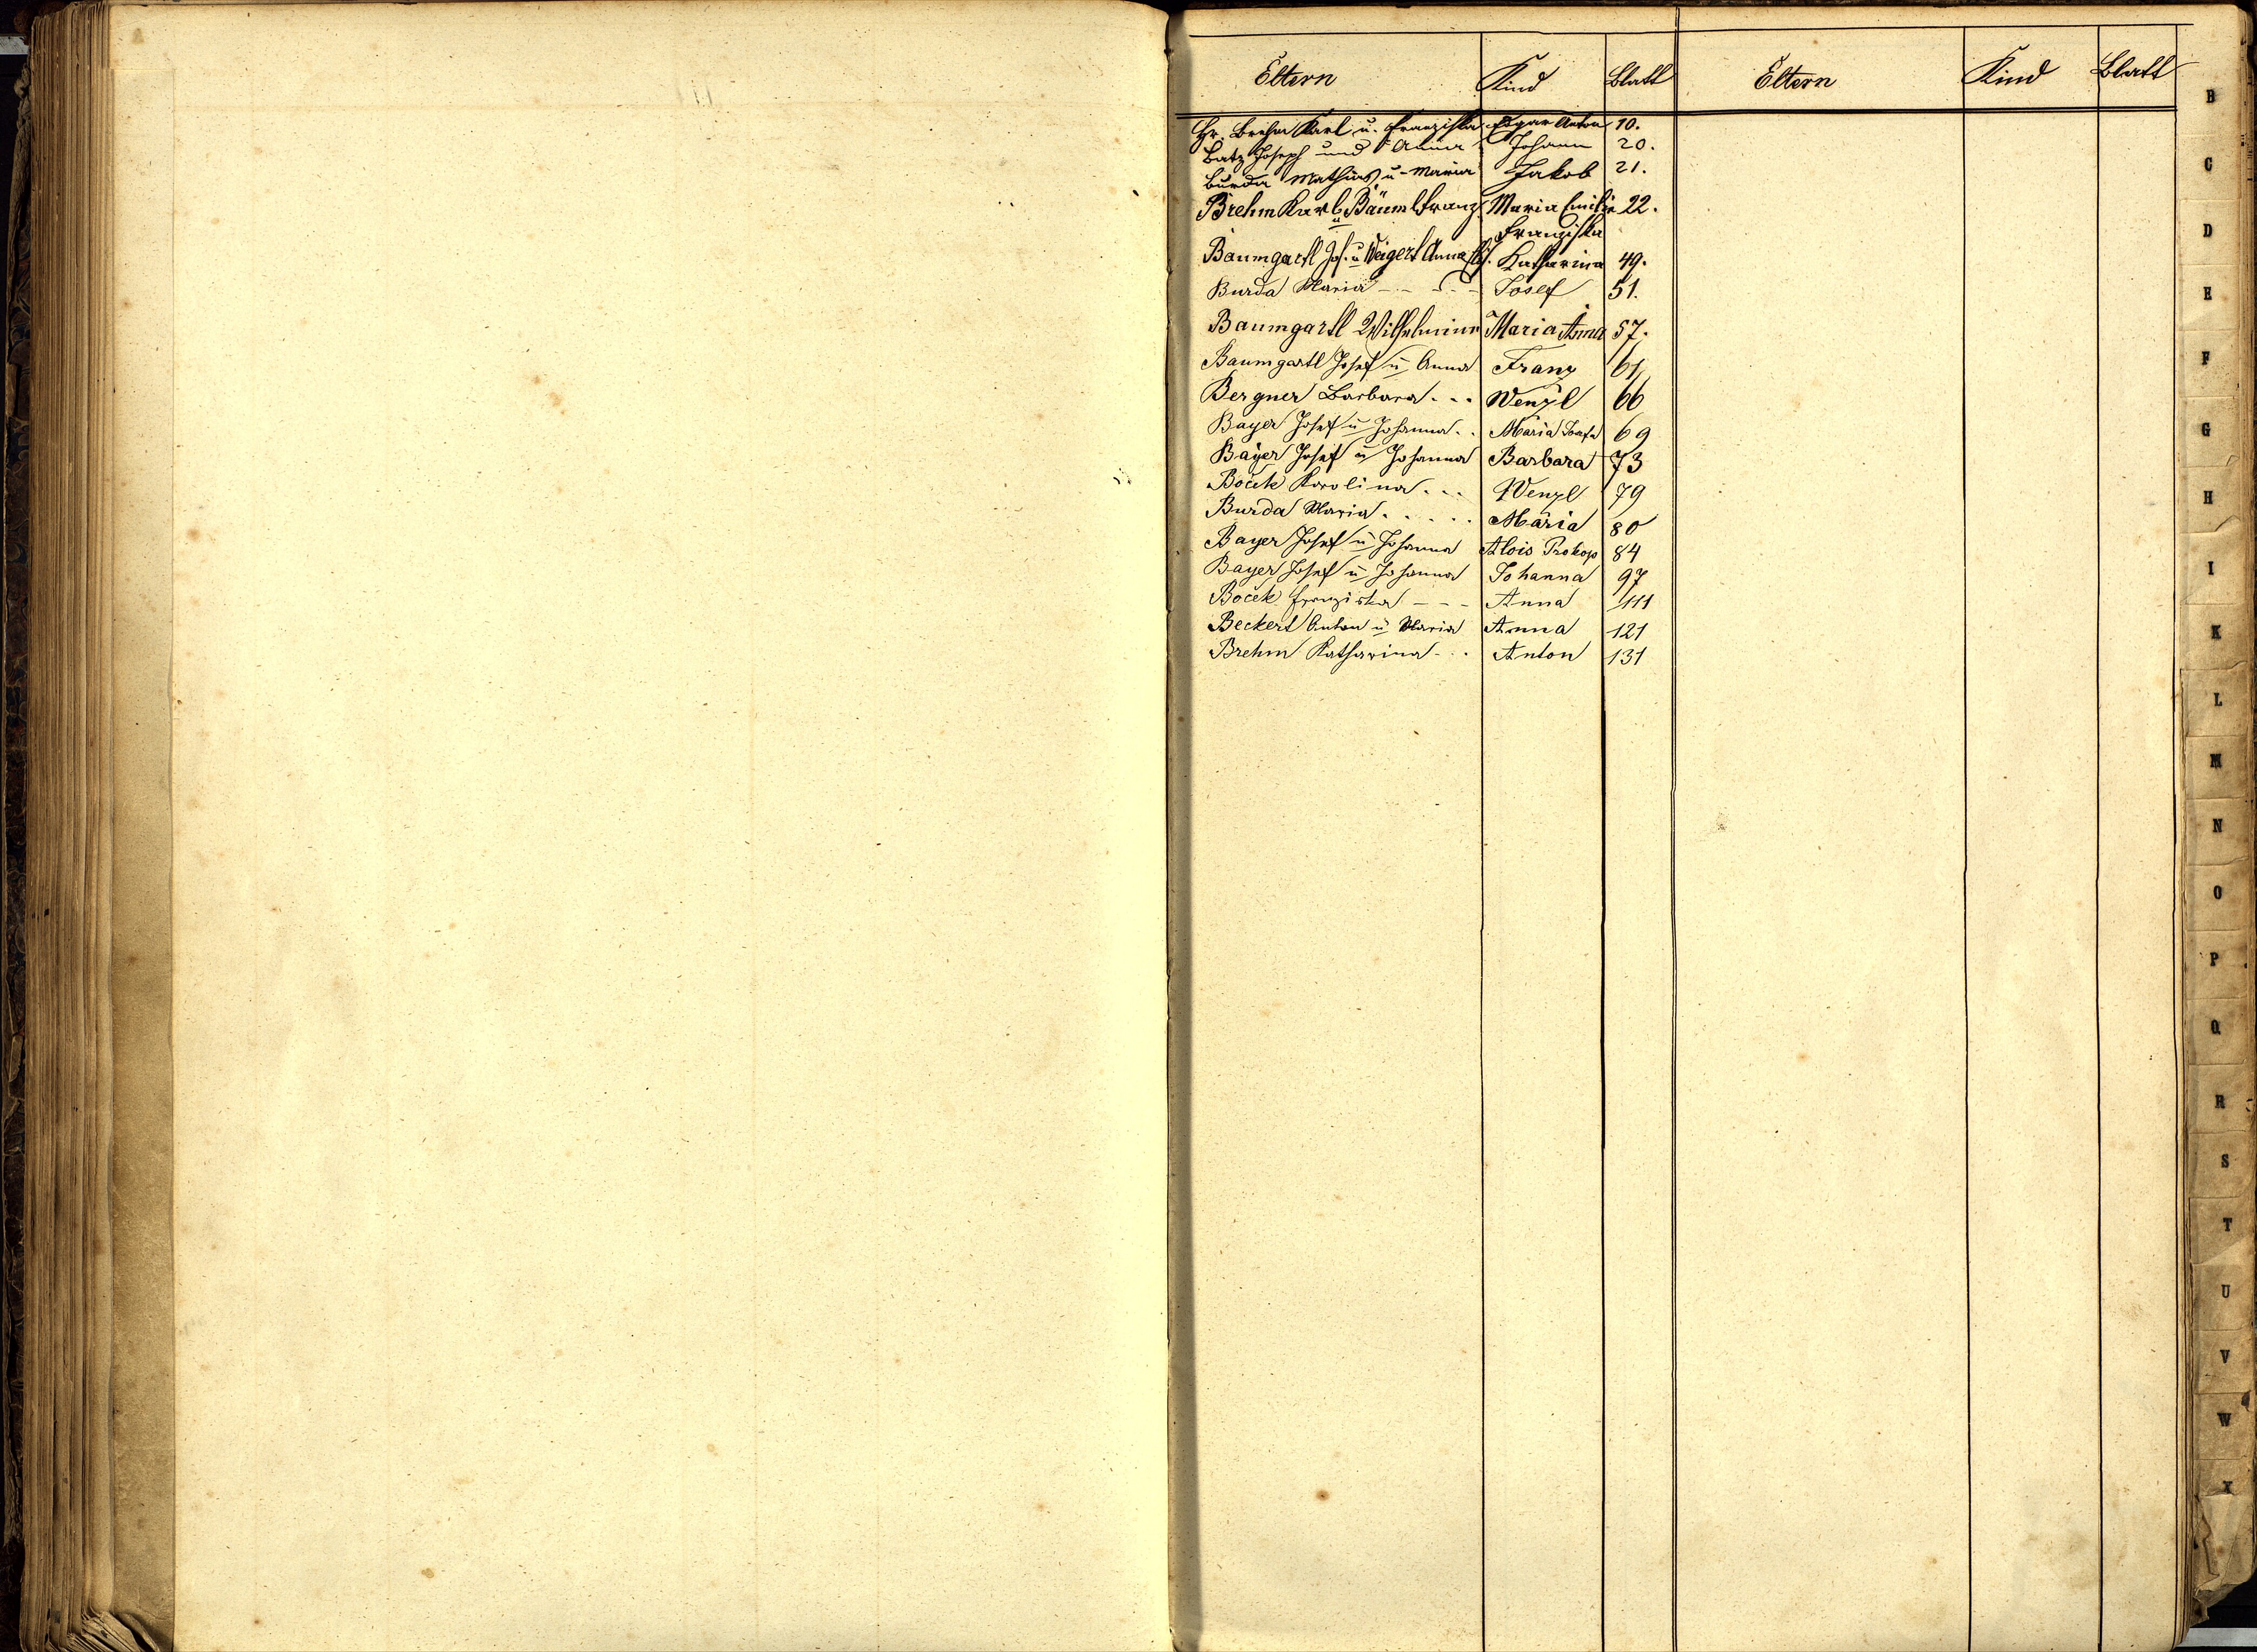 Eltern Kind Blatt Eltern Kind Blatt
Hr. Brehm Karl u. Franziska Edgar Anton 10.
Batz Joseph und Anna Johann 20.
Burda Mathias u. Maria Jakob 21.
Brehm Karl u Bäuml Franz Maria Emilie 22.
Franziska
Baumgartl Jos. u Weigert Anna Katharina 49.
Burda Maria - - - - Josef 51.
Baumgartl Wilhelmine Maria Anna 57.
Baumgartl Josef u Anna Franz 61
Bergner Barbara . . . Wenzl 66
Bayer Josef u Johanna . . Maria Josefa 69
Bayer Josef u Johanna Barbara 73
Boček Karolina . . . Wenzl 79
Burda Maria . . . . . Maria 80
Bayer Josef u Johanna Alois Prokop 84
Bayer Josef u Johanna Johanna 97
Boček Franziska - - - Anna 111
Beckert Anton u Maria Anna 121
Brehm Katharina . . . Anton 131
B
C
D
E
F
G
H
I
K
L
M
N
O
P
Q
R
S
T
U
V
W
X